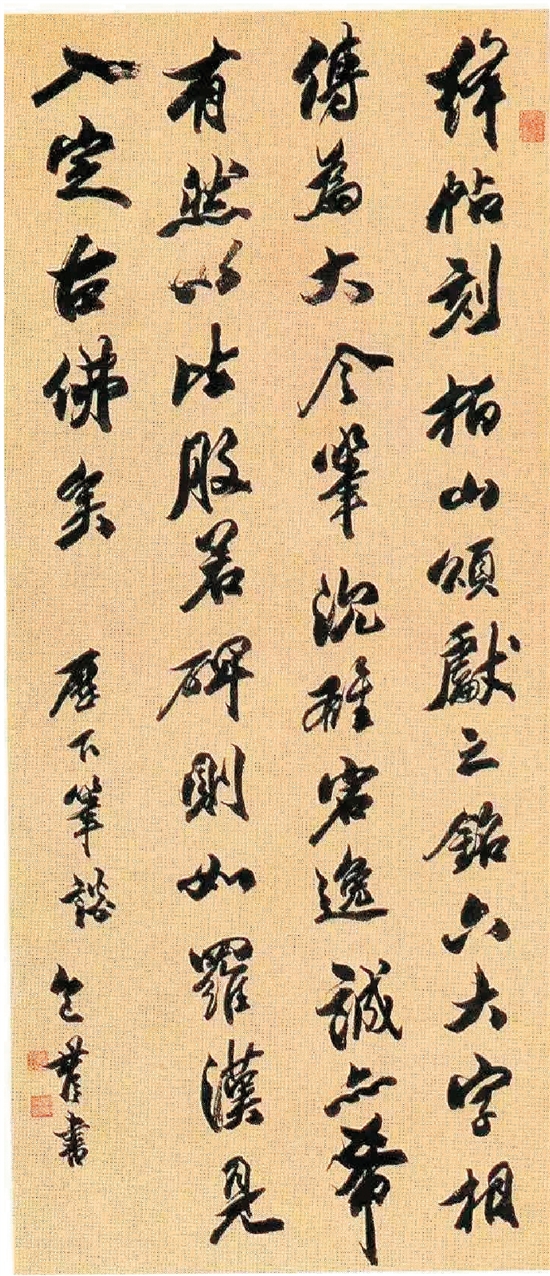 絳帖刻柏山頌獻之銘六大字相
傳為大令筆沉雄宕逸誠亦希
有然以比般若碑則如羅漢見
入定古佛矣 歷下筆談 包世臣書